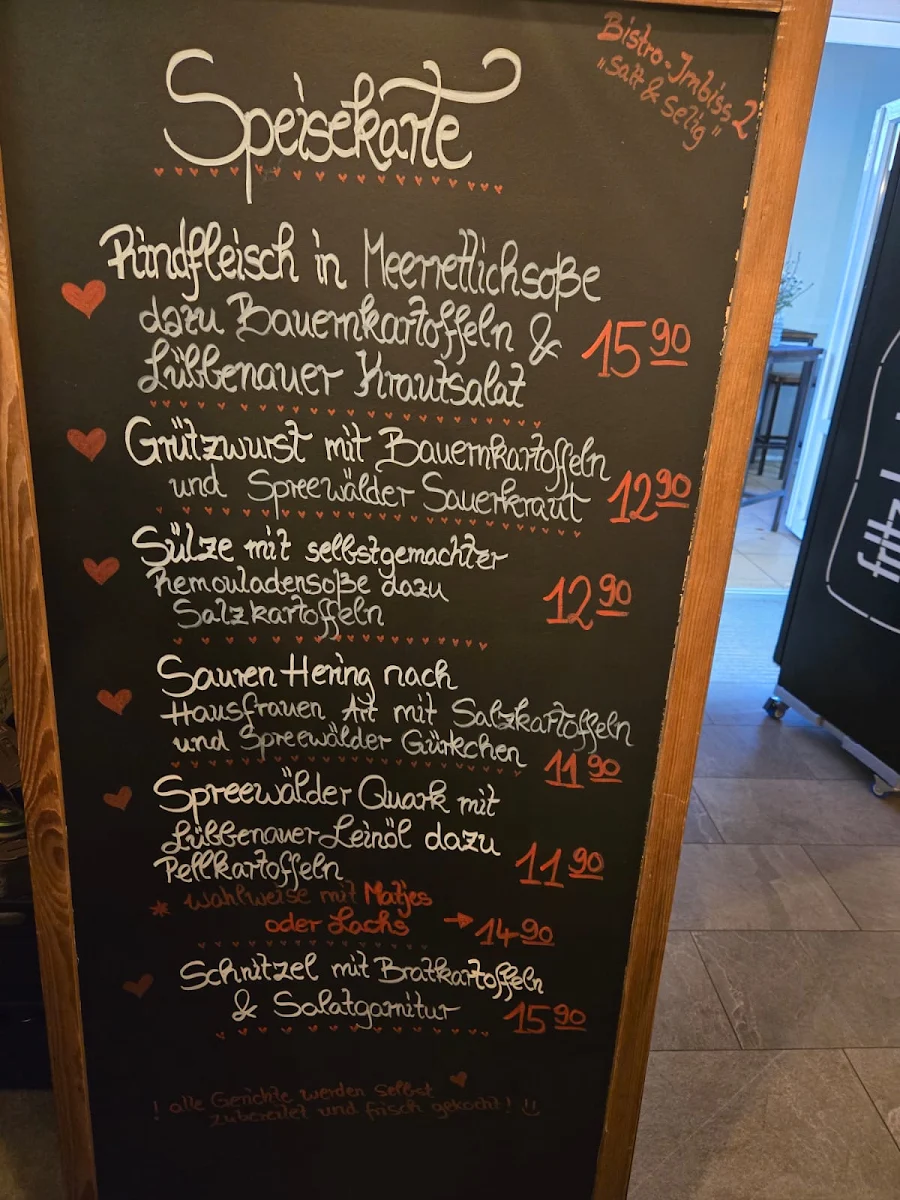 Bistro-Imbiss 2
"Satt & Selig"
Speisekarte
Rindfleisch in Meerrettichsoße
dazu Bauernkartoffeln &
Lübbenauer Krautsalat
15 90
Grützwurst mit Bauernkartoffeln
und Spreewälder Sauerkraut
12 90
Sülze mit selbstgemachter
Remouladensoße dazu
Salzkartoffeln
12 90
Sauren Hering nach
Hausfrauen Art mit Salzkartoffeln
und Spreewälder Gürkchen
11 90
Spreewälder Quark mit
Lübbenauer Leinöl dazu
Pellkartoffeln
11 90
* wahlweise mit Matjes
oder Lachs → 14 90
Schnitzel mit Bratkartoffeln
& Salatgarnitur
15 90
! alle Gerichte werden selbst
zubereitet und frisch gekocht!
fritz